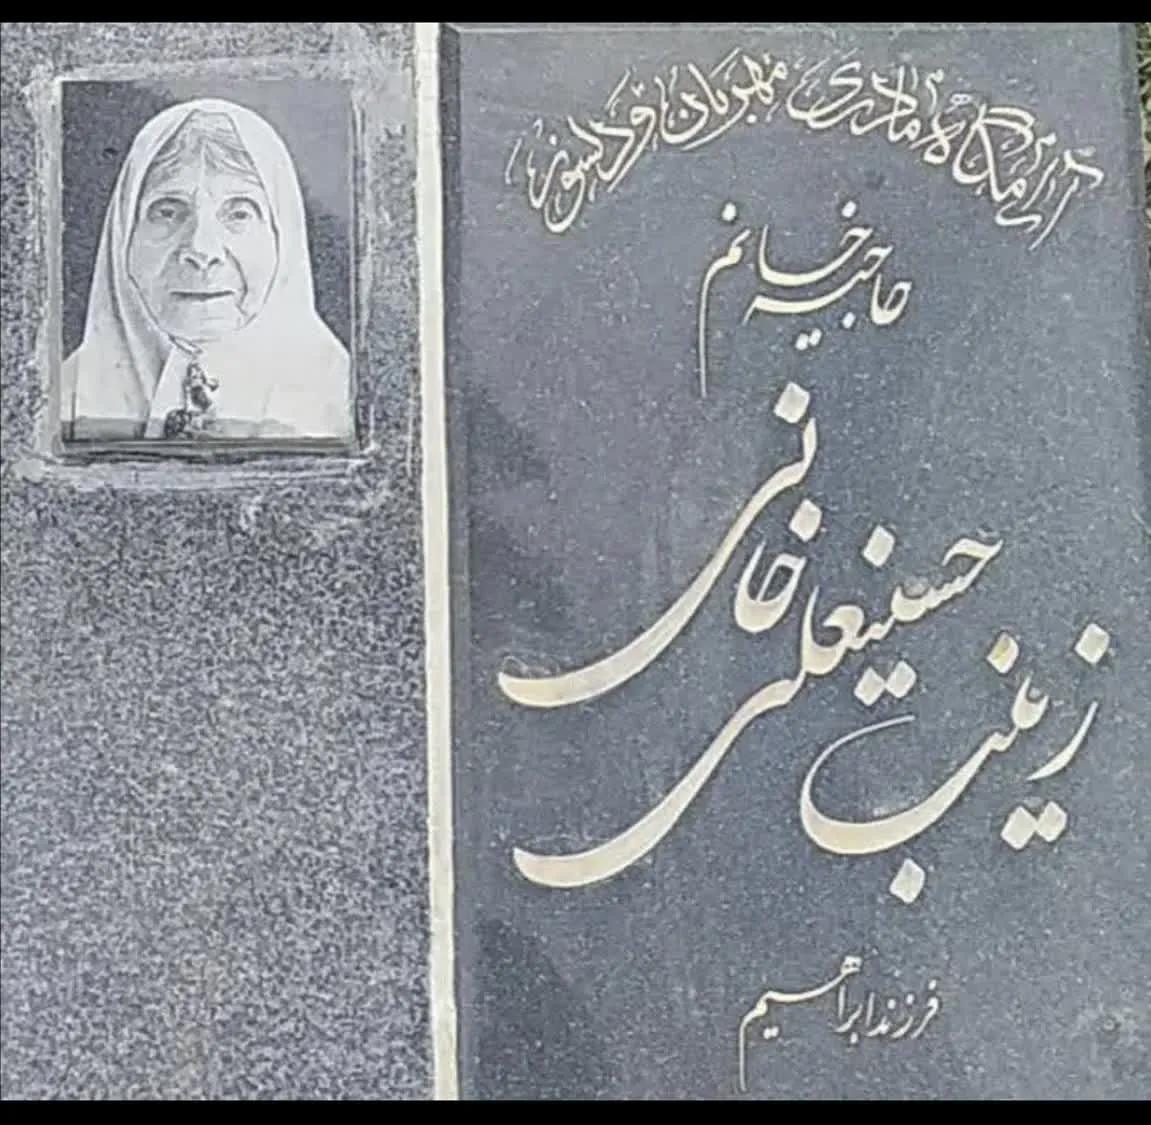 آرامگاه مادری مهربان و دلسوز
حاجیه خانم
زینب حسینعلی خانی
فرزند ابراهیم